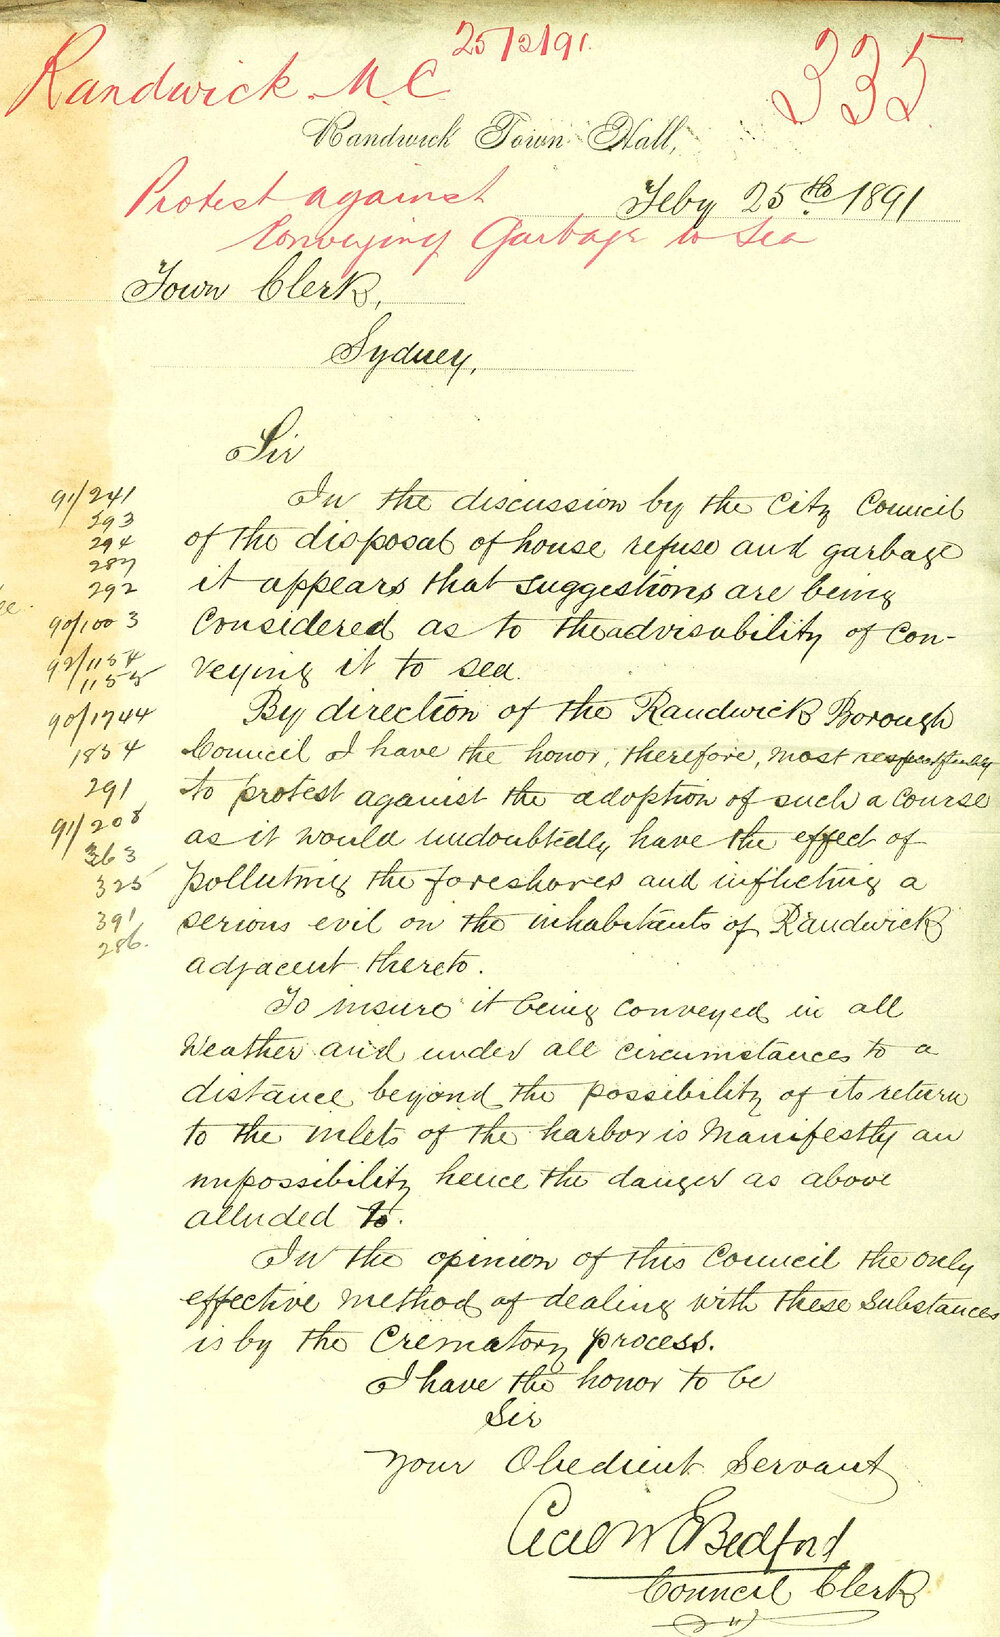 25/2/91.
Randwick M.C
335
Randwick Town Hall,
Protest against
Feby 25th 1891
Conveying Garbage to Sea
Town Clerk,
Sydney,
Sir
In the discussion by the City Council
of the disposal of house refuse and garbage
it appears that suggestions are being
considered as to the advisability of con-
veying it to sea.
By direction of the Randwick Borough
Council I have the honor, therefore, most respectfully
to protest against the adoption of such a course
as it would undoubtedly have the effect of
polluting the foreshores and inflicting a
serious evil on the inhabitants of Randwick
adjacent thereto.
To insure it being conveyed in all
weather and under all circumstances to a
distance beyond the possibility of its return
to the inlets of the harbor is manifestly an
impossibility hence the danger as above
alluded to.
In the opinion of this Council the only
effective method of dealing with these substances
is by the Crematory process.
I have the honor to be
Sir
Your Obedient Servant
Cecil W E Bedford
Council Clerk
91/241
293
294
287
292
90/1003
92/1154
/1155
90/1744
1834
291
91/208
363
325
391
286.